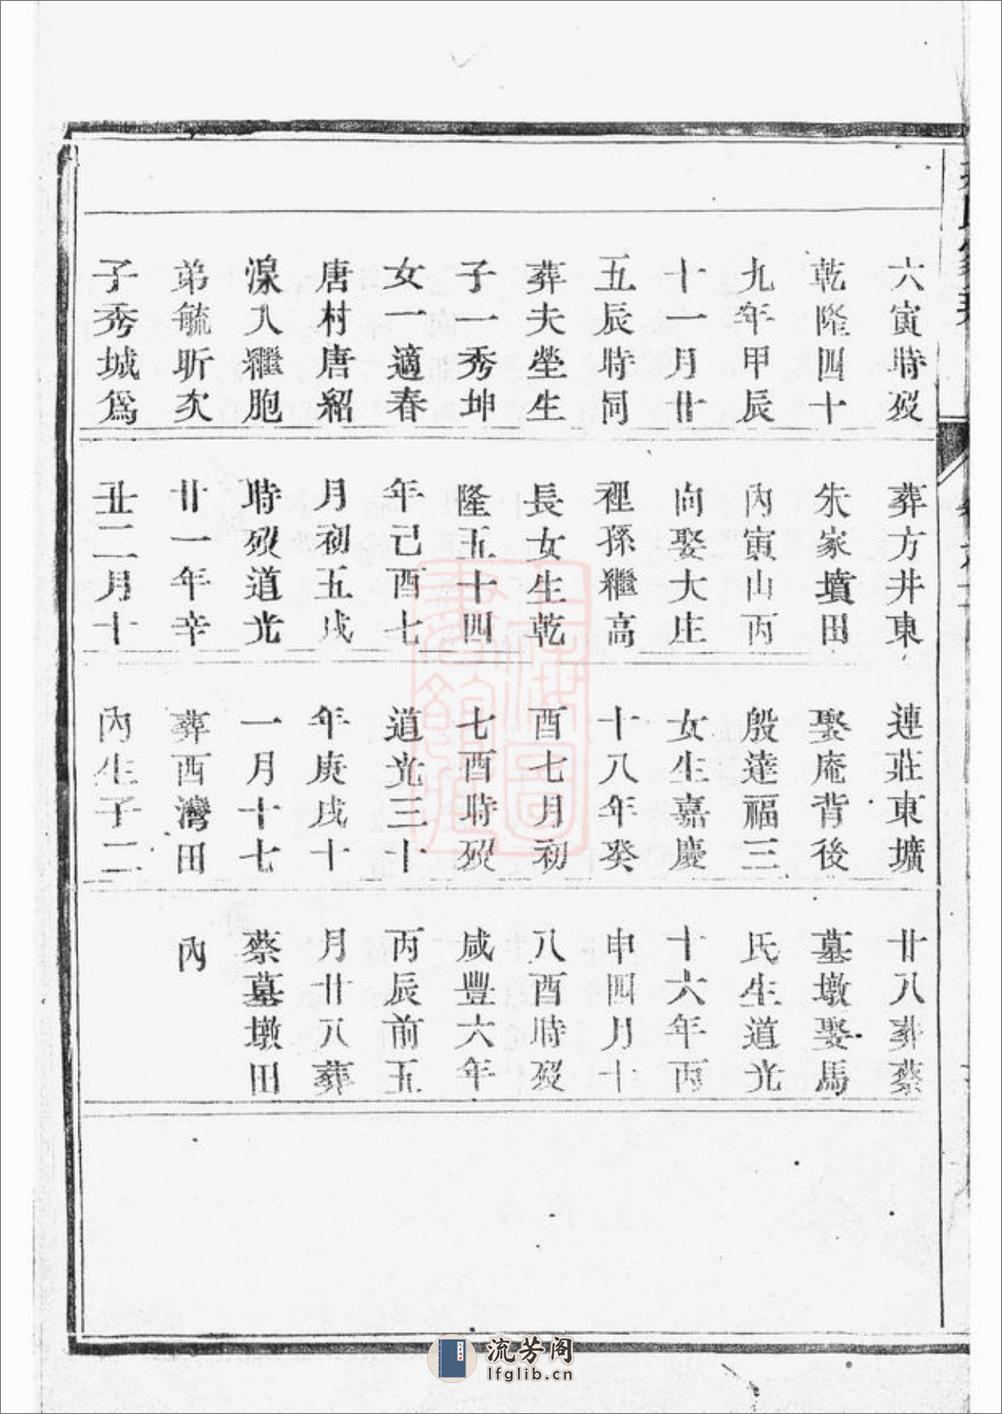 六寅時歿
乾隆四十
九年甲辰
十一月廿
五辰時同
葬夫塋生
子一秀坤
女一適春
唐村唐紹
湶入繼胞
弟毓昕次
子秀城爲
葬方井東
朱家墳田
內寅山丙
向娶大庄
裡孫繼高
長女生乾
隆五十四
年己酉七
月初五戌
時歿道光
廿一年辛
丑二月十
連莊東壙
娶庵背後
殷達福三
女生嘉慶
十八年癸
酉七月初
七酉時歿
道光三十
年庚戌十
一月十七
葬西灣田
內生子二
廿八葬蔡
墓墩娶馬
氏生道光
十六年丙
申四月十
八酉時歿
咸豐六年
丙辰前五
月廿八葬
蔡墓墩田
內
流芳阁
lfglib.cn